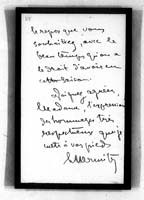 le repos que vous
souhaitez, avec le
beau temps qu'on a
le droit d'avoir en
cette saison.
Daignez agréer,
Madame, l'expression
des hommages très
respectueux que je
mets à vos pieds.